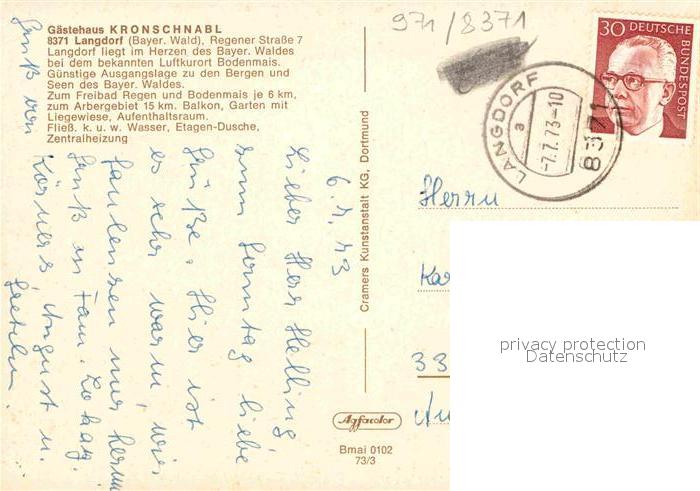 Gästehaus KRONSCHNABL
8371 Langdorf (Bayer. Wald), Regener Straße 7
Langdorf liegt im Herzen des Bayer. Waldes
bei dem bekannten Luftkurort Bodenmais.
Günstige Ausgangslage zu den Bergen und
Seen des Bayer. Waldes.
Zum Freibad Regen und Bodenmais je 6 km,
zum Arbergebiet 15 km. Balkon, Garten mit
Liegewiese, Aufenthaltsraum.
Fließ. k. u. w. Wasser, Etagen-Dusche,
Zentralheizung
6.7.73
Lieber Herr Helling
zum Sonntag liebe
Grüße. Hier ist
es sehr warm, wir
faulenzen nur herum
Gruß an Fam.
Gruß von
Körners August u.
Gretchen.
Cramers Kunstanstalt KG, Dortmund
Agfacolor
Bmai 0102
73/3
971/8371
30 DEUTSCHE
BUNDESPOST
LANGDORF
a
-7.7.73-10
8371
Herrn
33
privacy protection
Datenschutz